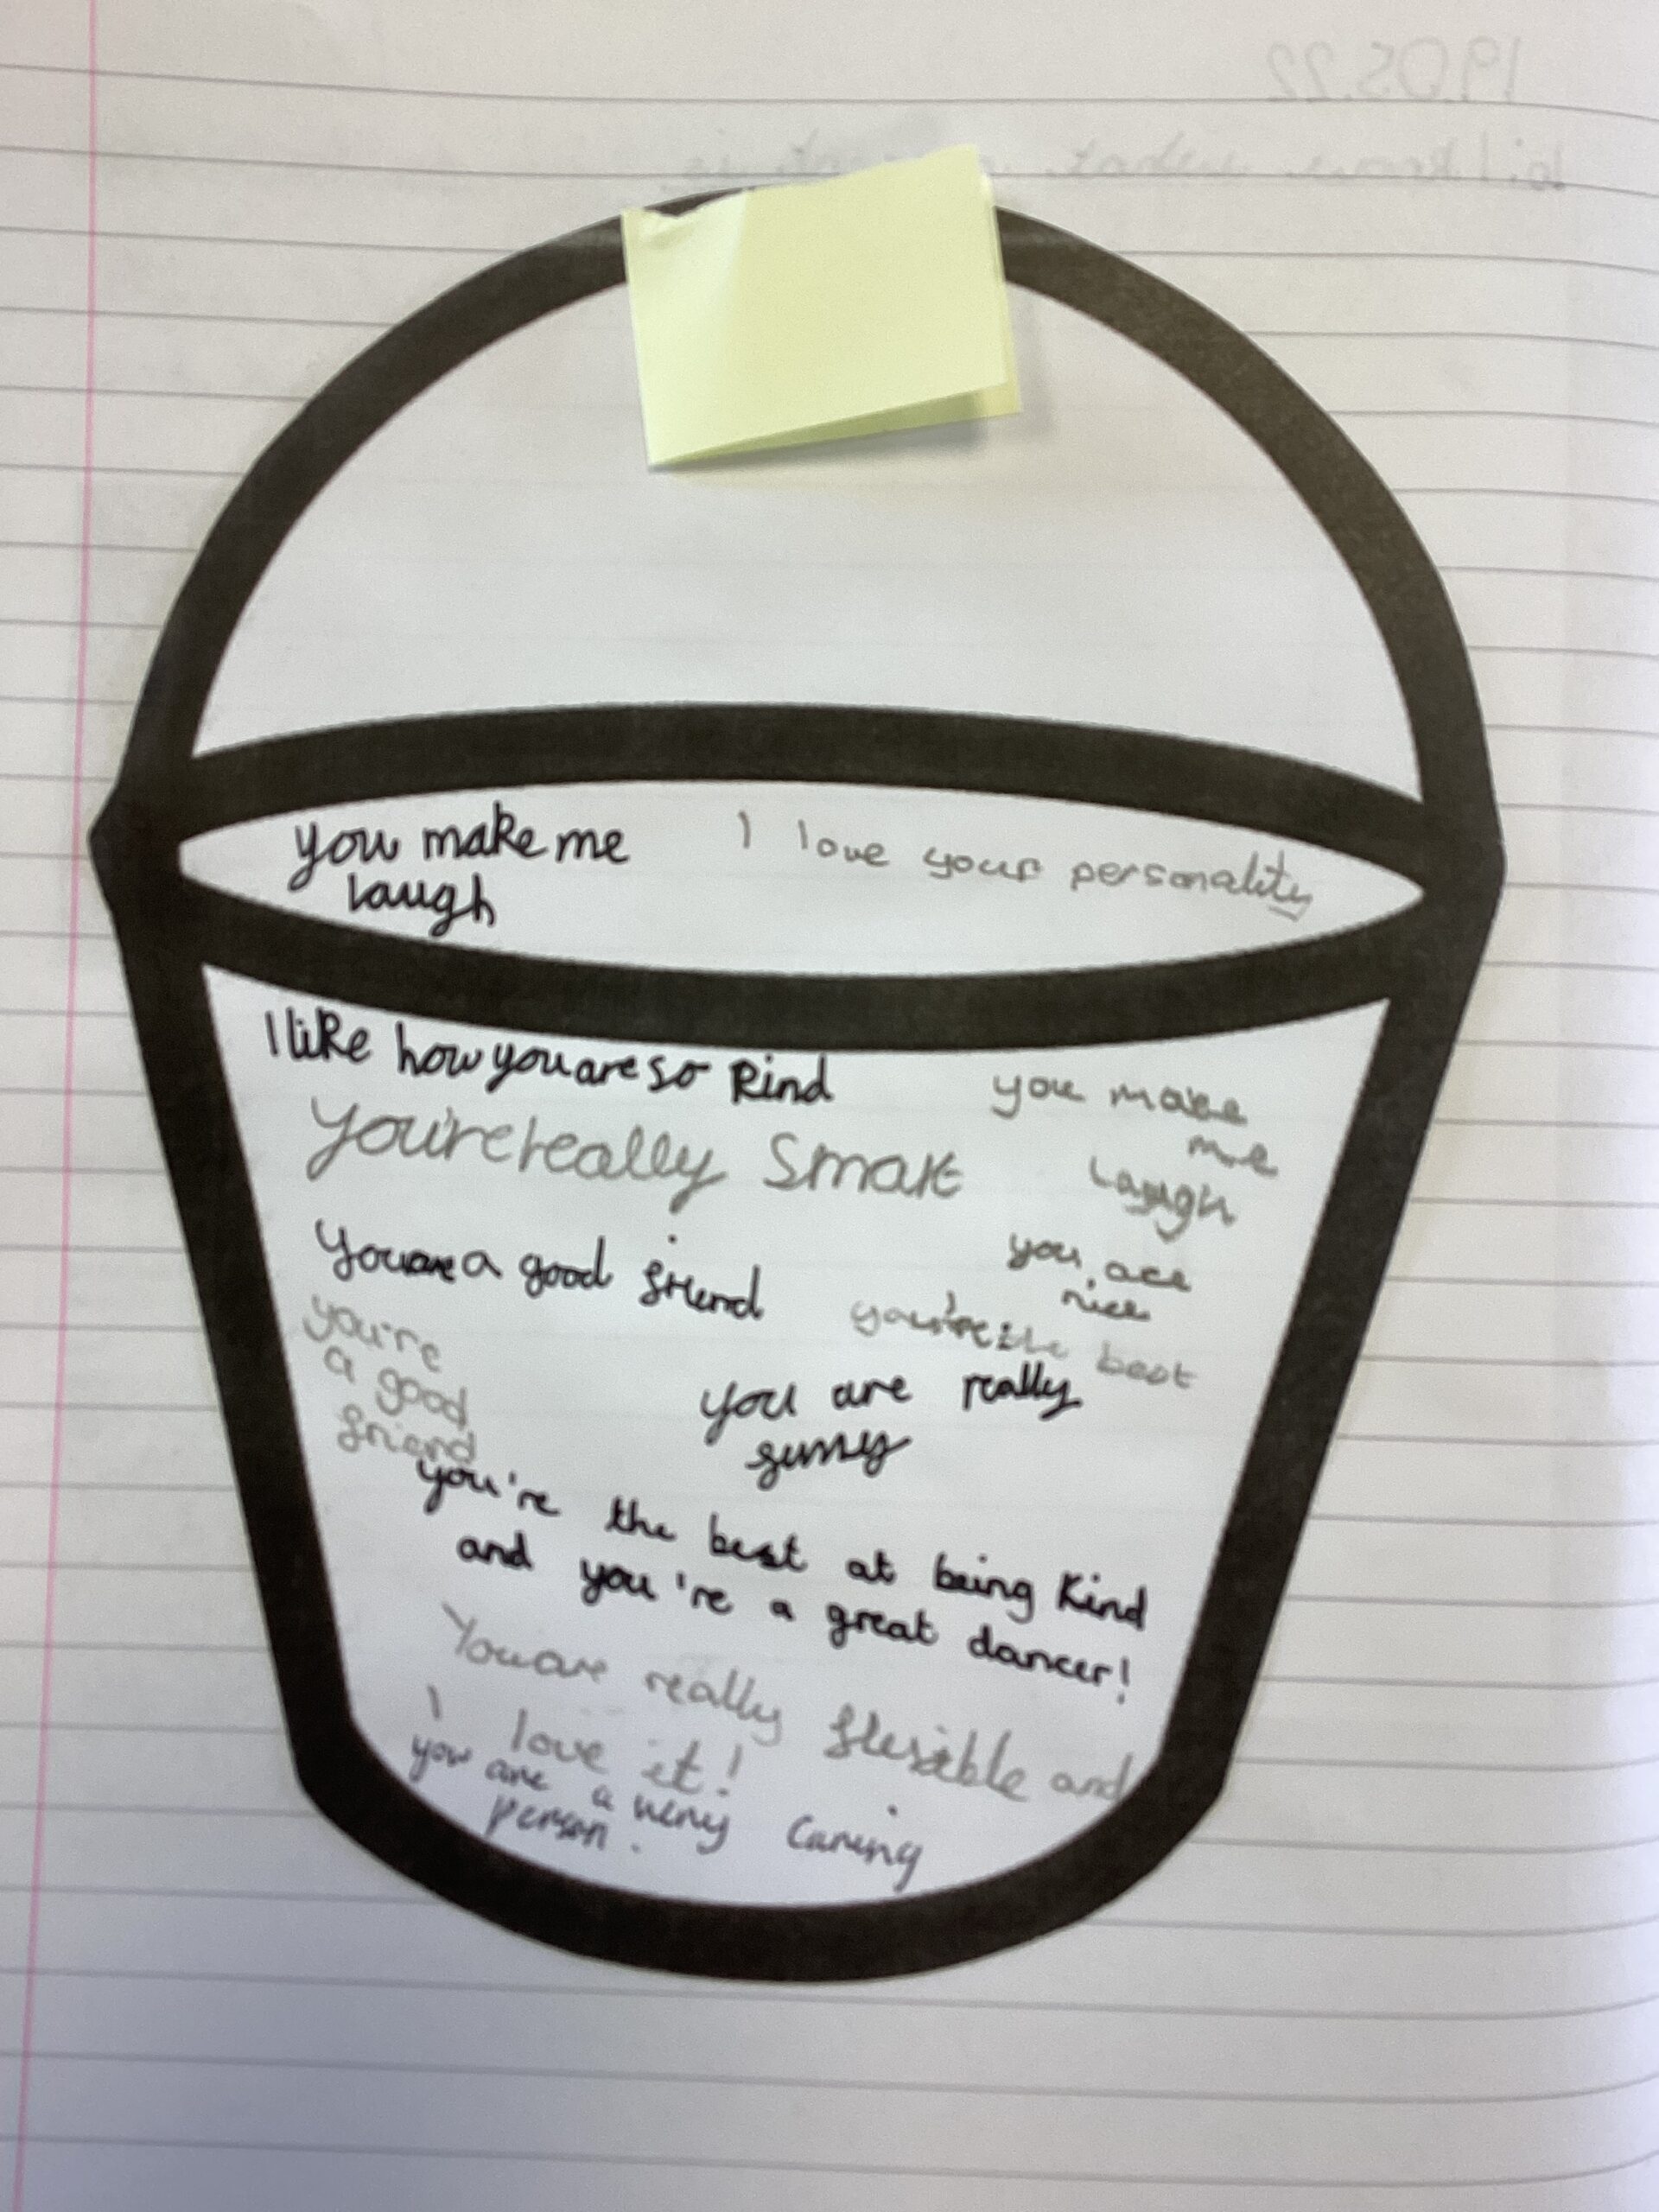 19.05.22
you make me
laugh
I love your personality
I like how you are so kind
you make
me
laugh
You're really smart
You are a good friend
you are
nice
you're the best
you're
a good
friend
you are really
funny
you're the best at being kind
and you're a great dancer!
You are really flexible and
I love it!
you are a very caring
person.